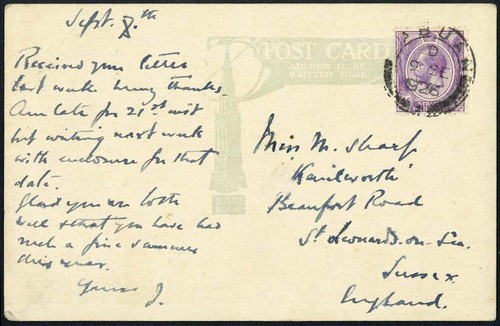 Sept. 8.th
Received your letter
last week. Many thanks.
Am late for 21st inst
but writing next week
with enclosure for that
date.
Glad you are both
well & that you have had
such a fine summer
this year.
Yours J.
POST CARD
ADDRESS TO BE
WRITTEN HERE
D
1926
Miss M. Sharp
Kenilworth
Beaufort Road
St Leonards-on-Sea.
Sussex.
England.